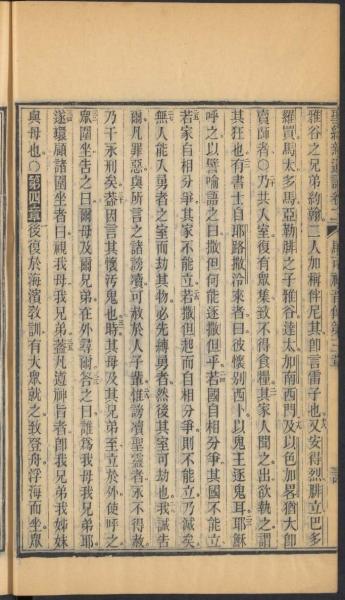 雅谷之兄弟約翰二人加稱伴尼其即言雷子也又安得烈腓立巴多
羅買馬太多馬亞勒腓之子雅谷達太加南西門及以色加畧猶大即
賣師者〇乃共入室復有眾集致不得食糧其家人聞之出欲執之謂
其狂也有書士自耶路撒冷來者曰彼懷別西卜以鬼王逐鬼耳耶穌
呼之以譬喻語之曰撒但何能逐撒但乎若國自相分爭其國不能立
若家自相分爭其家不能立若撒但起而自相分爭則不能立乃滅矣
無人能入勇者之室而劫其物必先縛勇者然後其室可劫也我誠告
爾凡罪惡與所言之諸謗讟可赦於人子輩惟謗讟聖靈者永不得赦
乃干永刑矣蓋因言其懷汚鬼也時其母及其兄弟至立於外使呼之
眾圍坐告之曰爾母及爾兄弟在外尋爾答之曰誰為我母我兄弟耶
遂環顧諸圍坐者曰視我母我兄弟蓋凡遵神旨者即我兄弟我姊妹
與母也〇第四章後復於海濱教訓有大眾就之致登舟浮海而坐眾